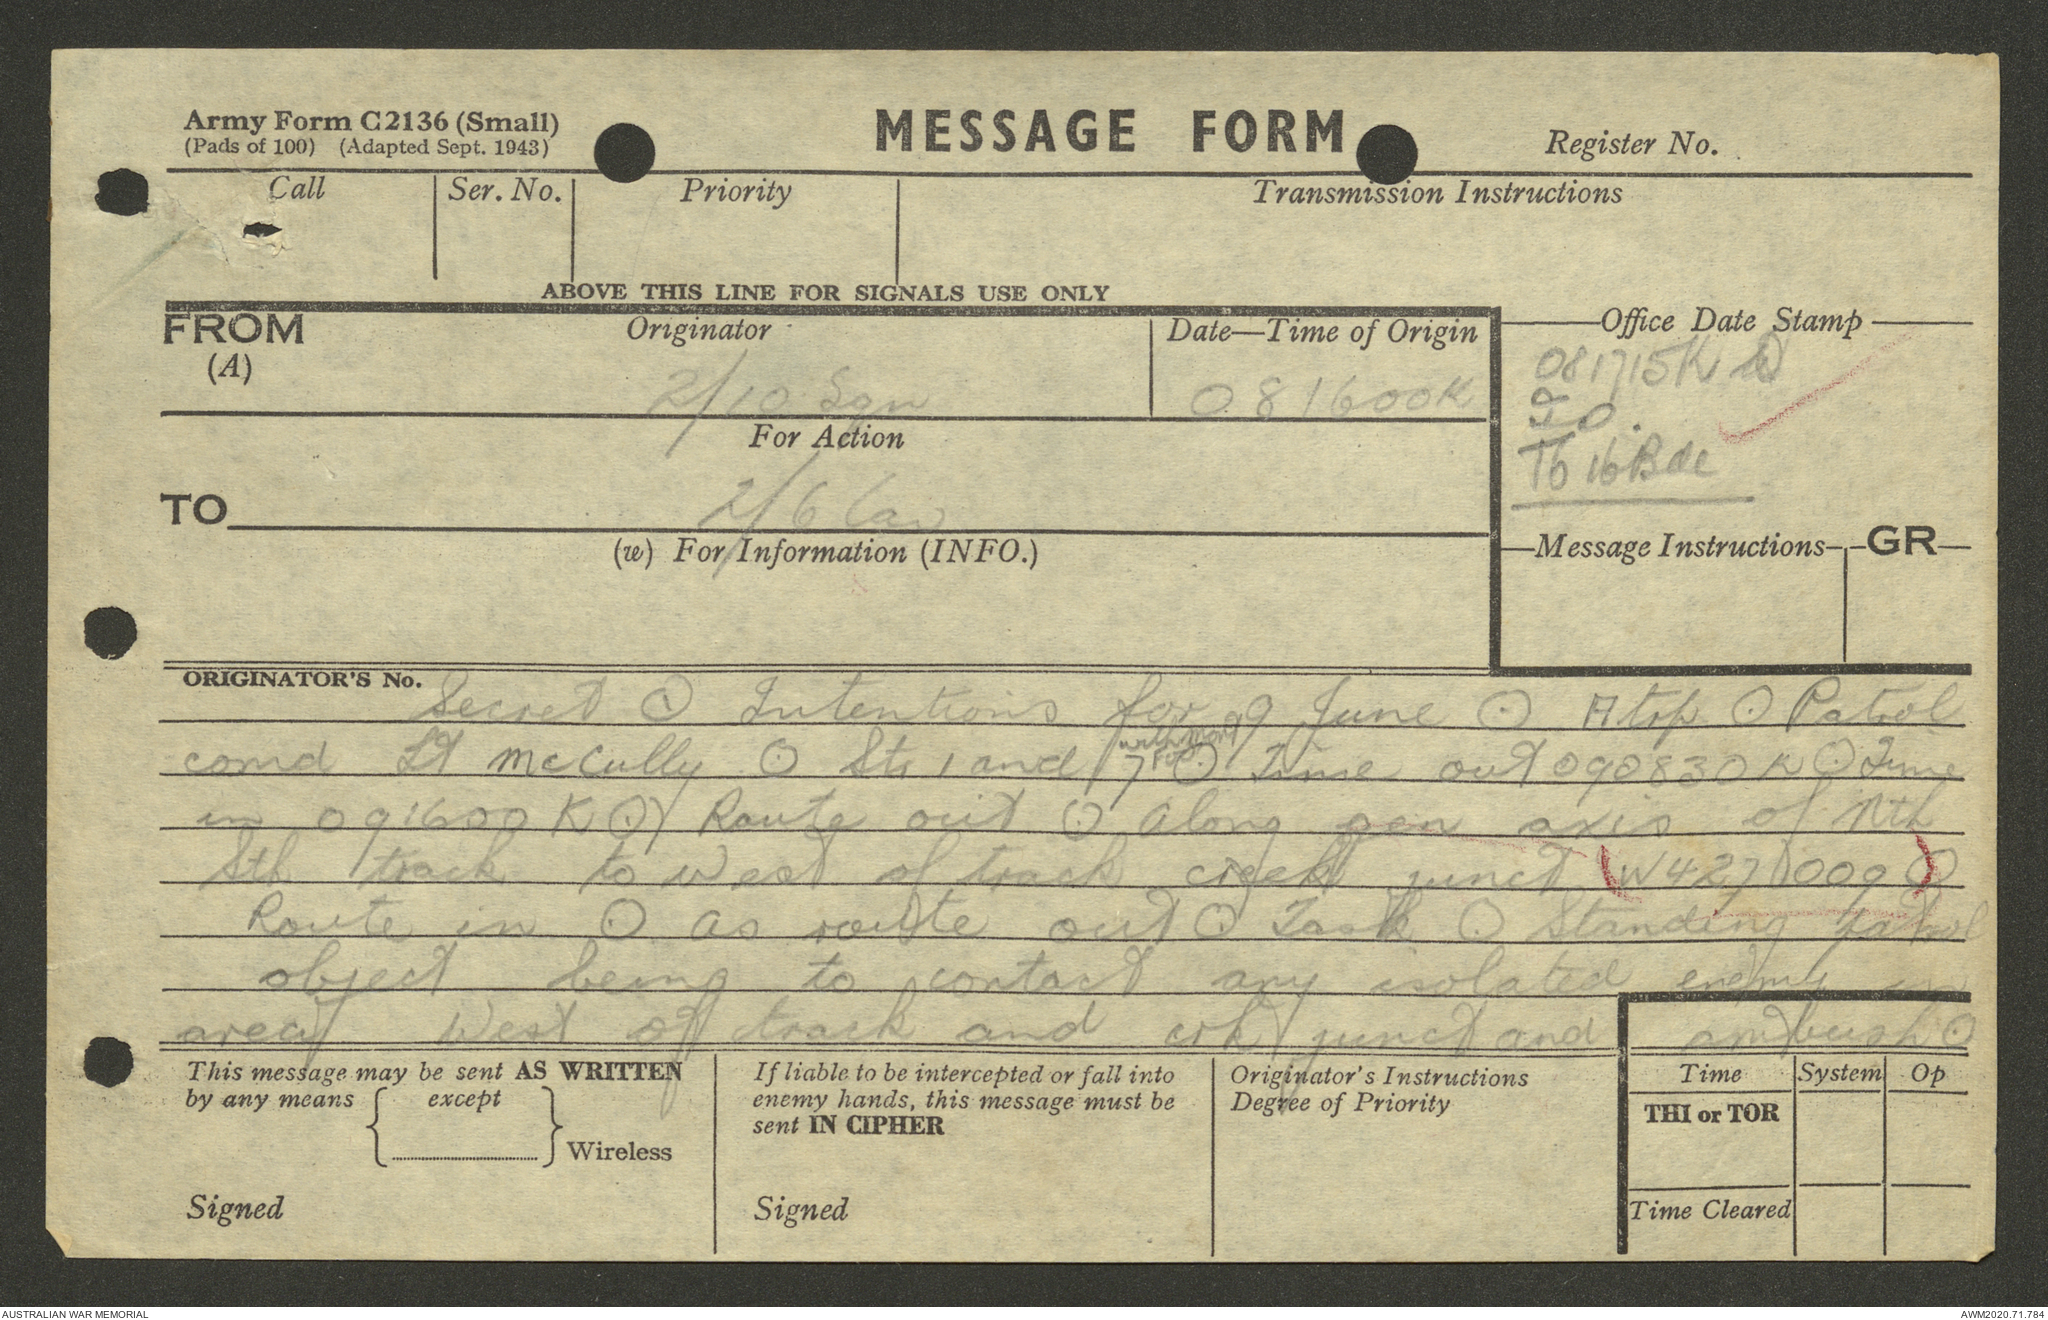 Army Form C2136 (Small)
(Pads of 100) (Adapted Sept. 1943)
MESSAGE FORM
Register No.
Call Ser. No. Priority Transmission Instructions
ABOVE THIS LINE FOR SIGNALS USE ONLY
FROM
(A)
Originator
2/10 Sqn
Date—Time of Origin
081600K
Office Date Stamp
081715K
IO.
To 16 Bde
For Action
TO 2/6 Cav
(w) For Information (INFO.)
Message Instructions GR
ORIGINATOR'S No.
Secret ⊙ Intentions for 9 June ⊙ A trp ⊙ Patrol
comd Lt McCully ⊙ Str 1 and 7 ⊙ Time out 090830K ⊙ Time
in 091600K ⊙ Route out ⊙ Along gen axis of Nth
Sth track to West of track creek junct (W427009) ⊙
Route in ⊙ as route out ⊙ Task ⊙ Standing patrol
object being to contact any isolated enemy in
area West of track and crk junct and ambush ⊙
This message may be sent AS WRITTEN
by any means except
Wireless
Signed
If liable to be intercepted or fall into
enemy hands, this message must be
sent IN CIPHER
Signed
Originator's Instructions
Degree of Priority
Time System Op
THI or TOR
Time Cleared
AUSTRALIAN WAR MEMORIAL
AWM2020.71.784